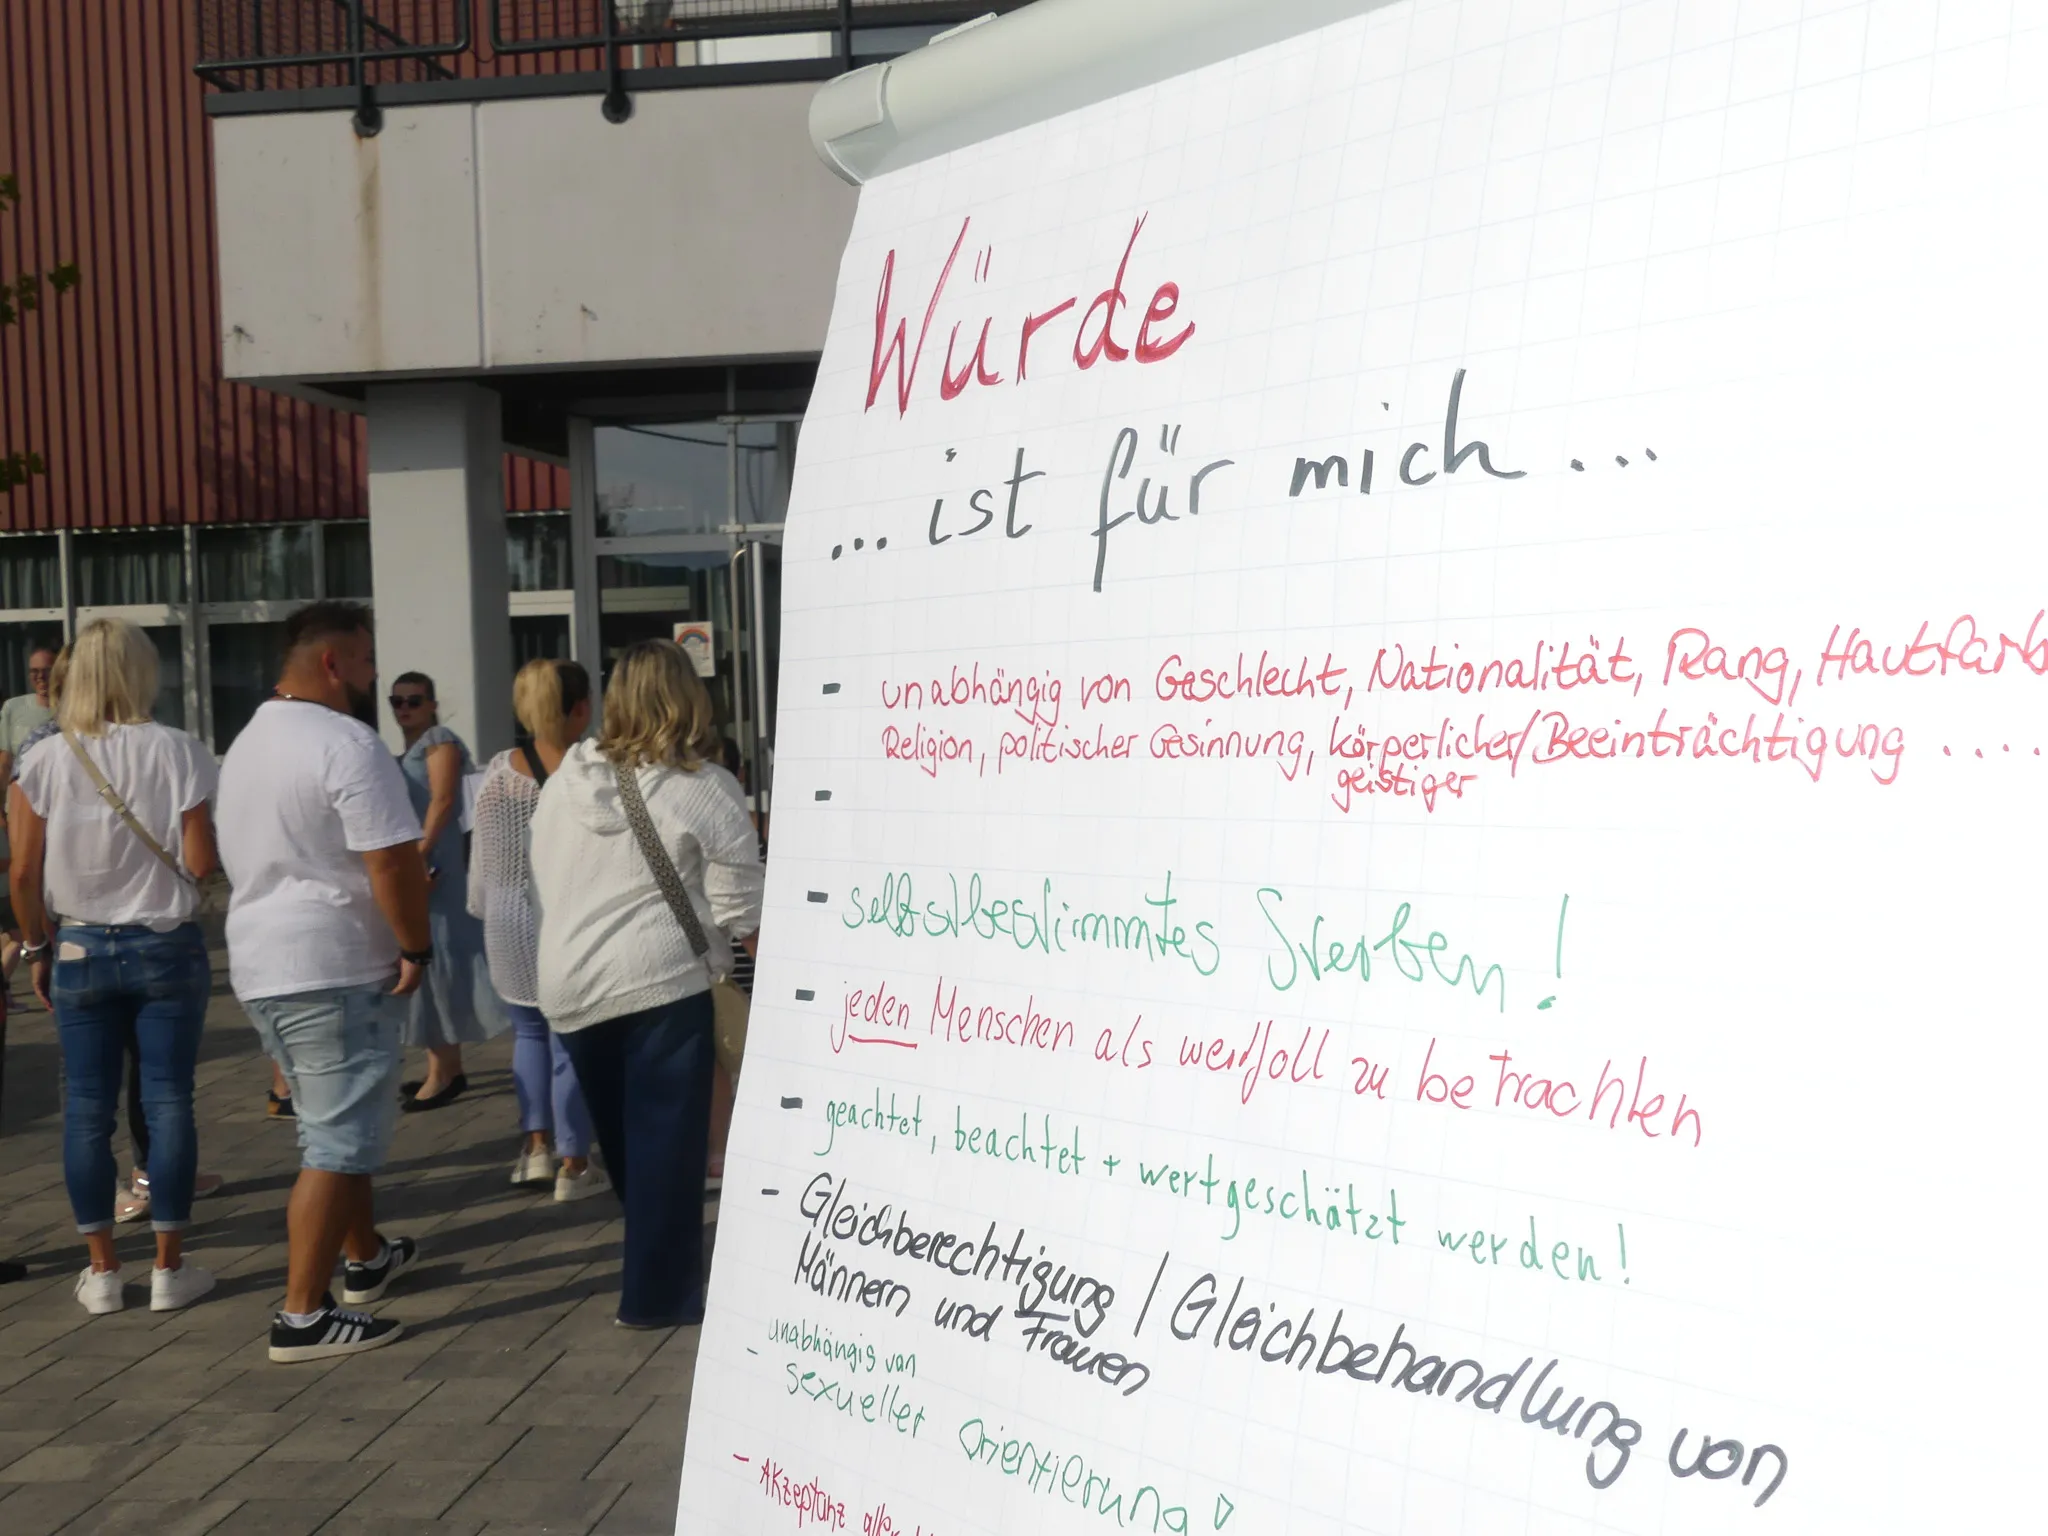 Würde
... ist für mich ...
- unabhängig von Geschlecht, Nationalität, Rang, Hautfarb
Religion, politischer Gesinnung, körperlicher/Beeinträchtigung ....
geistiger
-
- selbstbestimmtes Sterben!
- jeden Menschen als wertfoll zu betrachten
- geachtet, beachtet + wertgeschätzt werden!
- Gleichberechtigung / Gleichbehandlung von
Männern und Frauen
unabhängig von
- sexueller Orientierung
- Akzeptanz aller